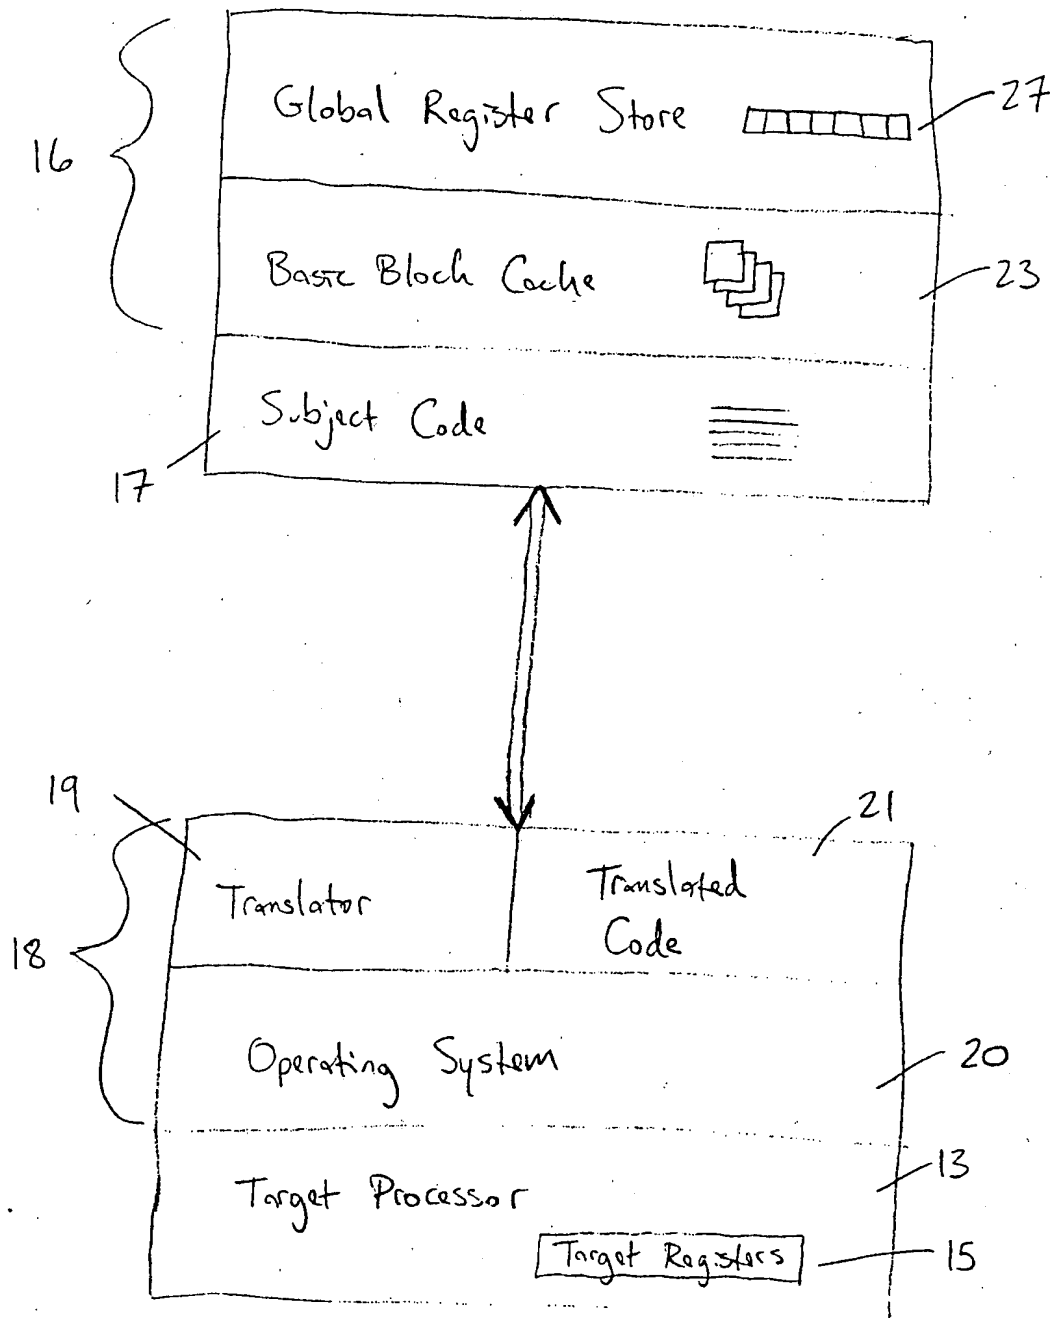 Global Register Store
27
16
Basic Block Cache
23
Subject Code
17
19
21
Translator
Translated
Code
18
Operating System
20
13
Target Processor
Target Registers
15